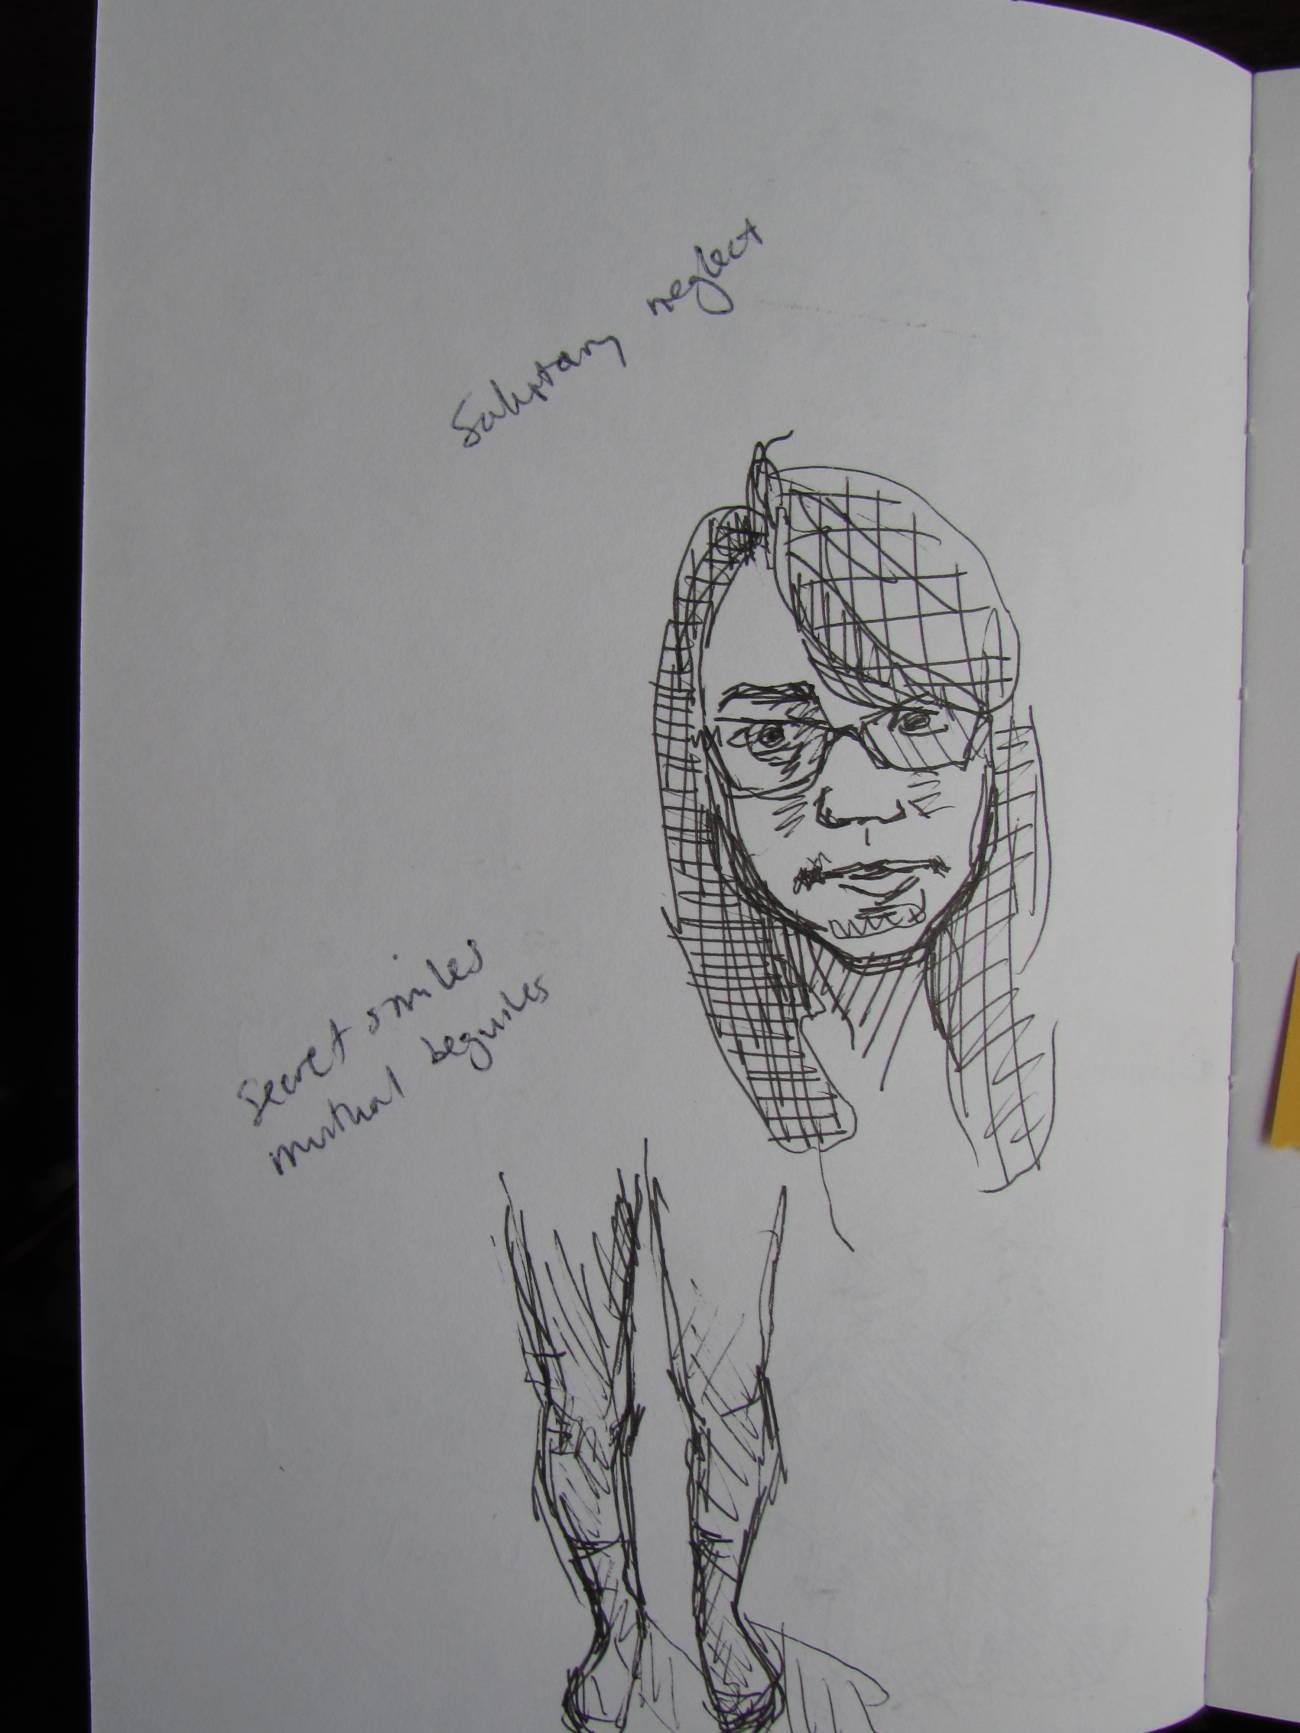 Salutary neglect
Secret smiles
mutual beguiles